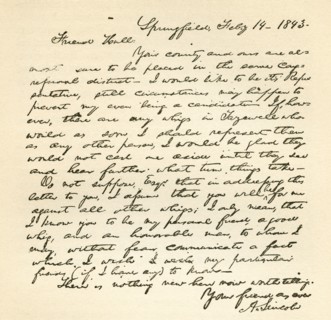 Springfield, Feby 14 - 1843.
Friend Hull
Your county and ours are al-
most sure to be placed in the same Con-
gressional district - I would like to be its Repre
sentative, still circumstances may happen to
prevent my even being a candidate - If, how-
ever, there are any whigs in Tazewell who
would as soon I should represent them
as any other person, I would be glad they
would not cast me aside until they see
and hear farther what turn things take -
Do not suppose, Esqr. that in addressing this
letter to you, I assume that you will be for me
against all other whigs; I only mean, that
I know you to be my personal friend, a good
whig, and an honorable man, to whom I
may without fear, communicate a fact
which I wish my particular
friends (if I have any) to know -
There is nothing new here now worth telling.
Your friend as ever
A. Lincoln